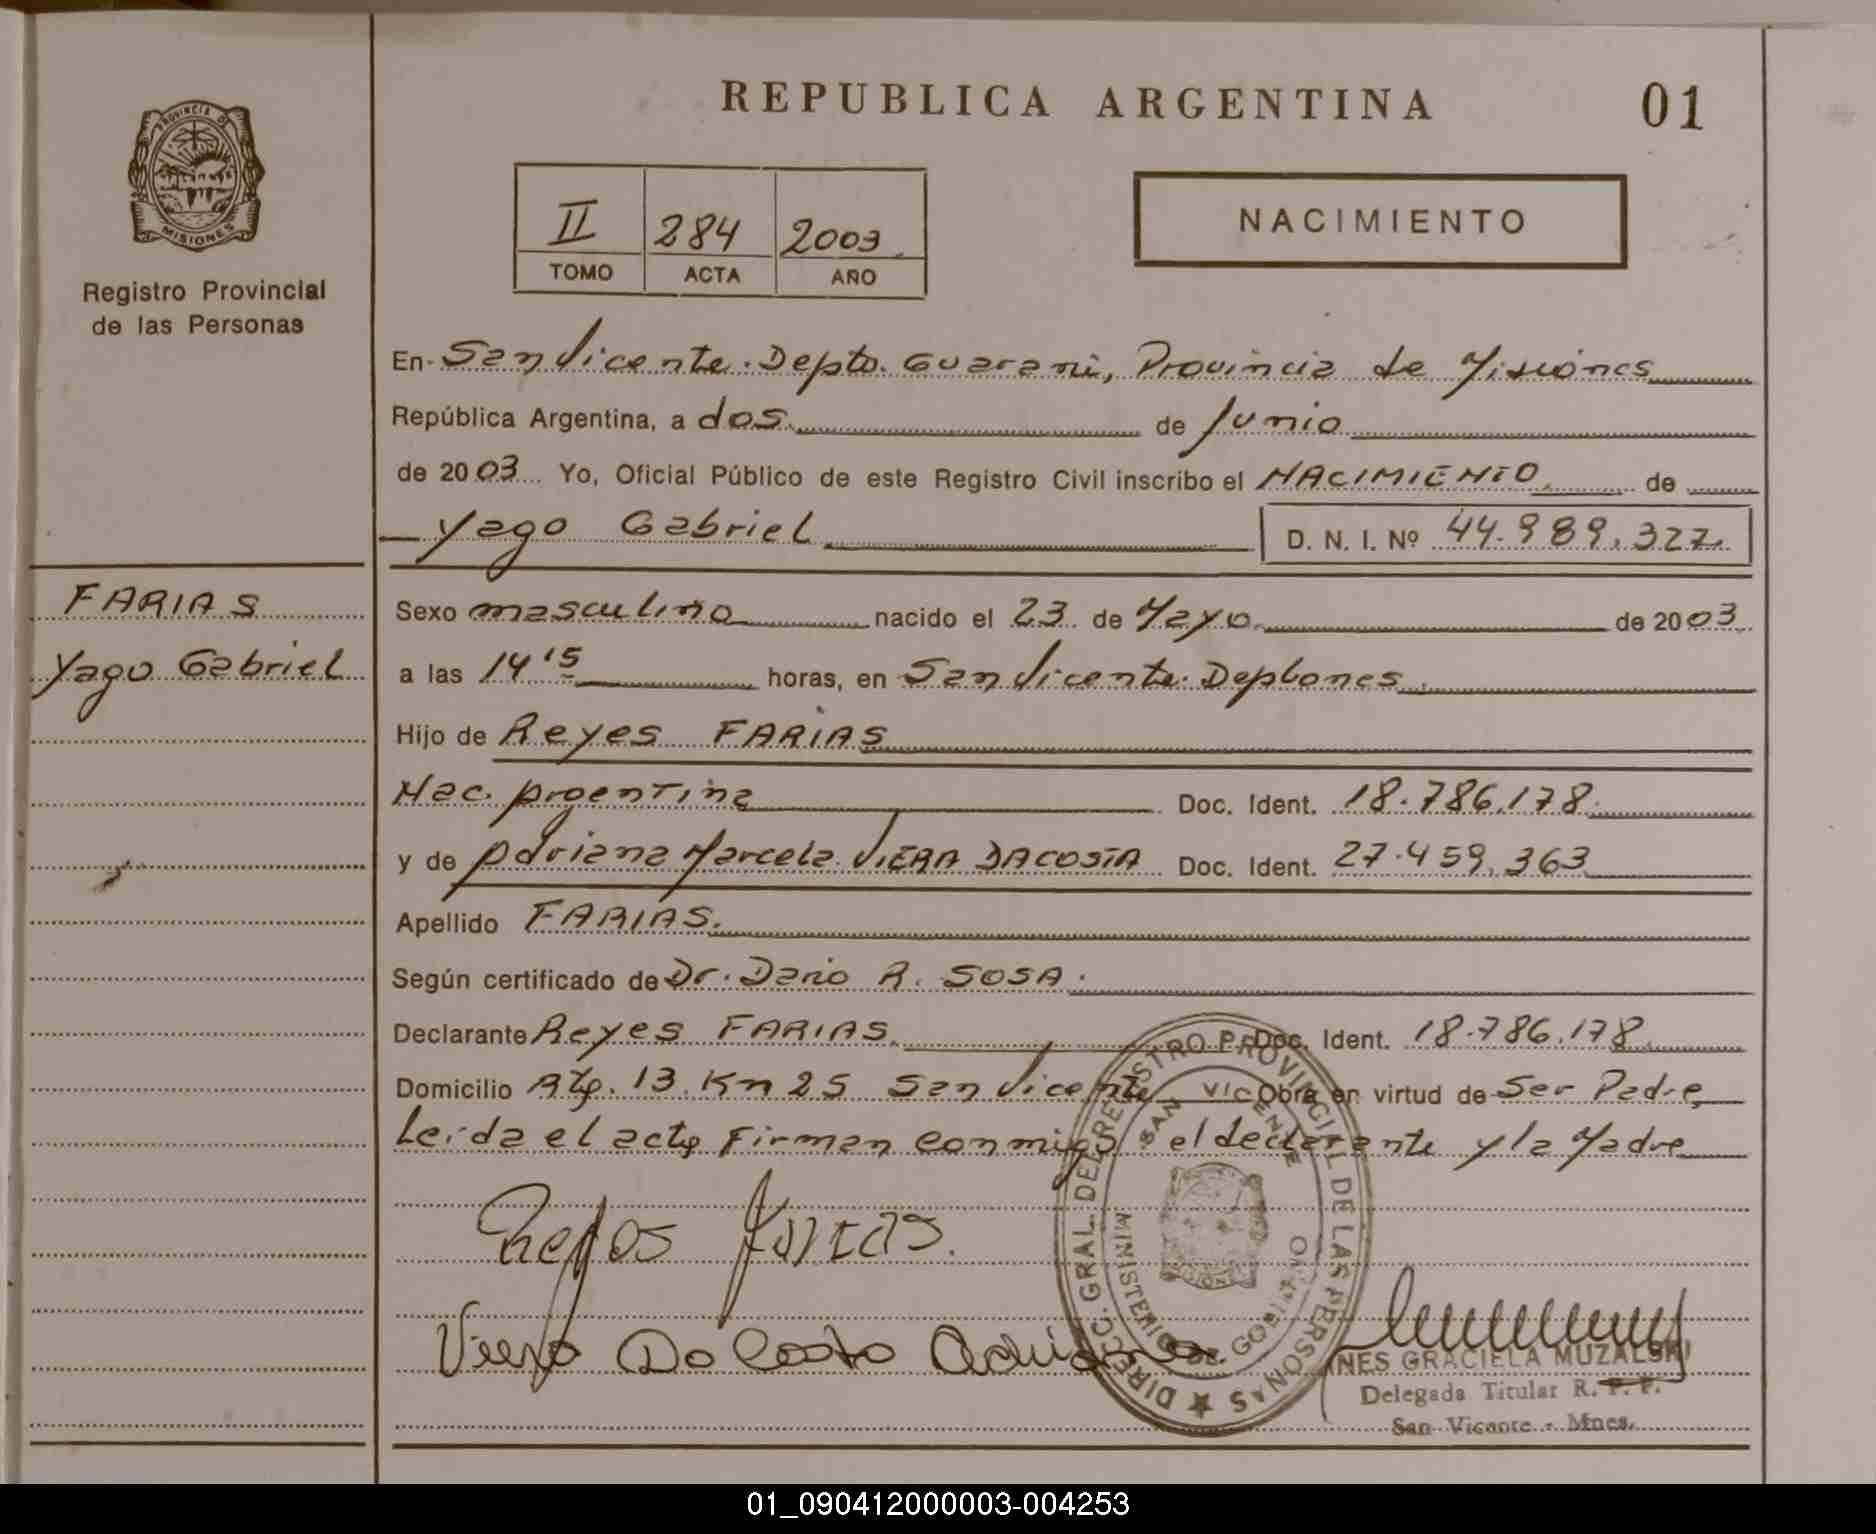 REPUBLICA ARGENTINA
01
PROVINCIA DE
MISIONES
Registro Provincial
de las Personas
II 284 2003
TOMO ACTA AÑO
NACIMIENTO
En San Vicente. Depto. Guarani, Provincia de Misiones
República Argentina, a dos. de Junio
de 2003 Yo, Oficial Público de este Registro Civil inscribo el NACIMIENTO de
Yago Gabriel D. N. I. Nº 44.989.327.
FARIAS
Yago Gabriel
Sexo masculino nacido el 23 de Mayo de 2003
a las 14 15 horas, en San Vicente.
Hijo de Reyes FARIAS
Nac. Argentina Doc. Ident. 18.786.178.
y de Adriana Marcela VIERA DACOSTA Doc. Ident. 27.459.363
Apellido FARIAS.
Según certificado de Dr. Dario R. SOSA.
Declarante Reyes FARIAS. Doc. Ident. 18.786.178
Domicilio Rta. 13. Km 25 San Vicente Obra en virtud de Ser Padre,
Leida el acta Firman conmigo el declarante y la Madre
Reyes Farias.
Viera Da Costa Adriana
DIRECC. GRAL. DEL REGISTRO PROVINCIAL DE LAS PERSONAS
SAN VICENTE
MINISTERIO DE GOBIERNO
INES GRACIELA MUZALSKI
Delegada Titular R. P. P.
San Vicente - Mnes.
01_090412000003-004253